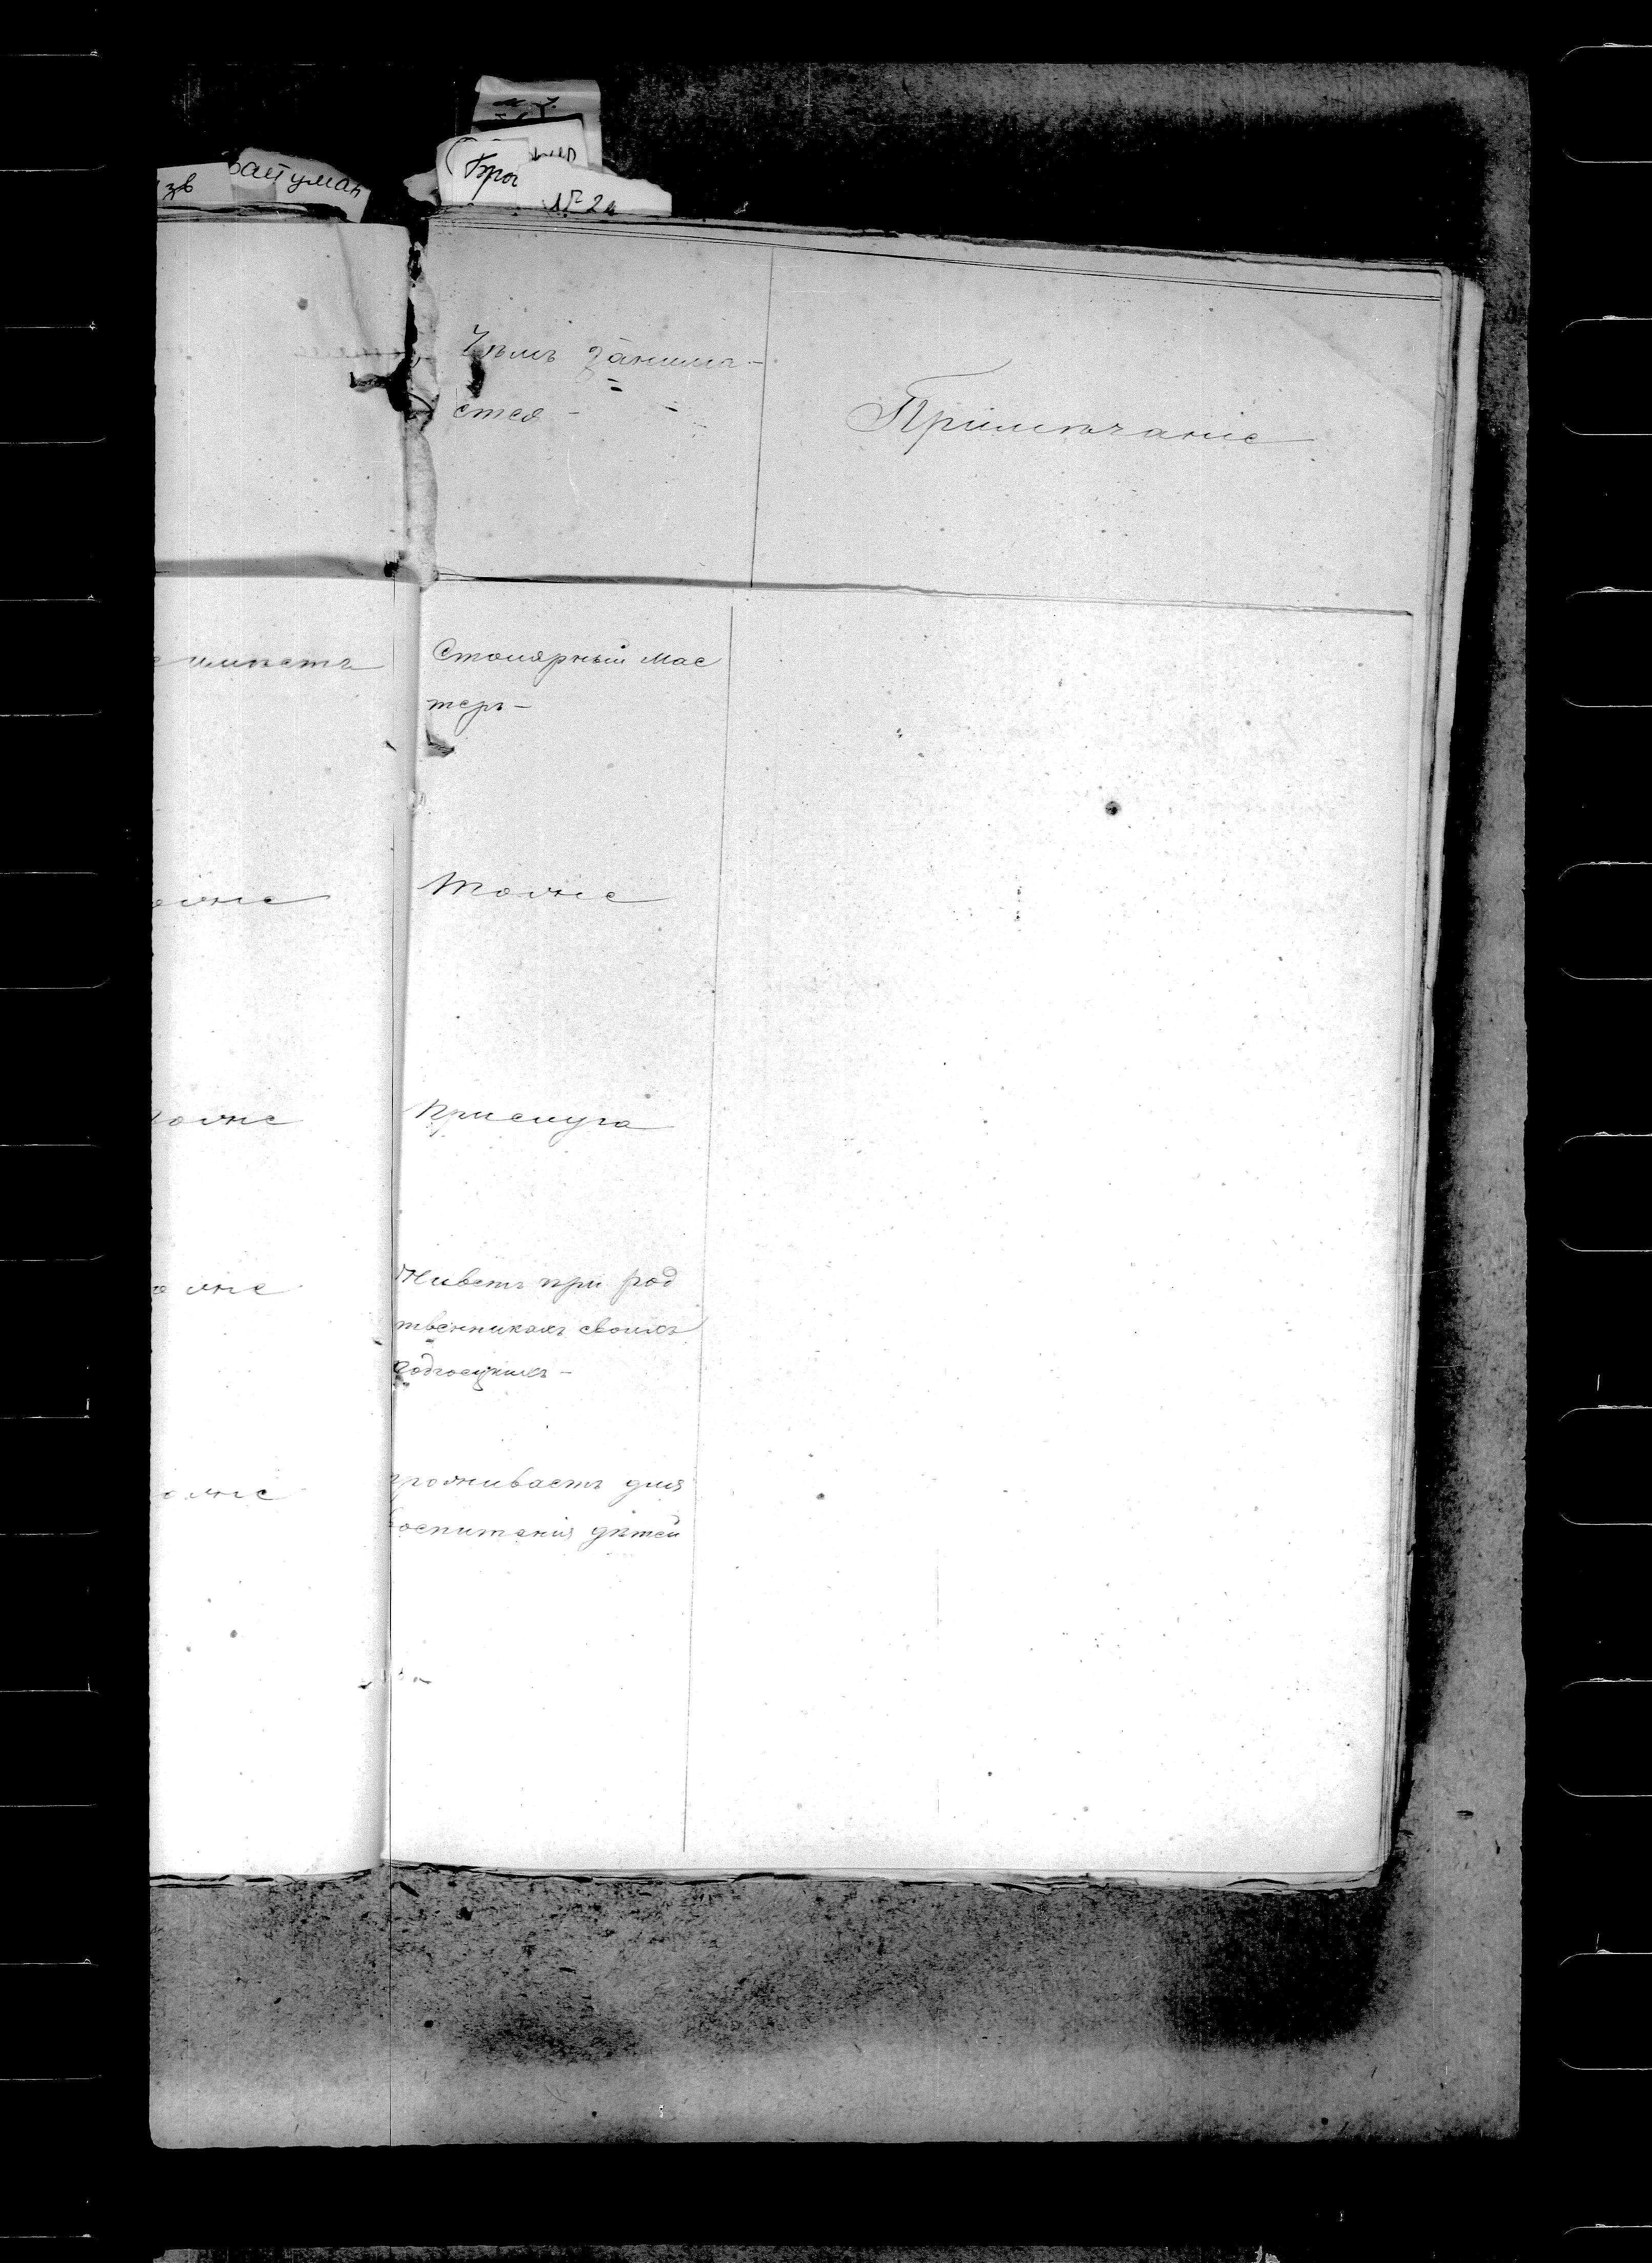 зв
байуман
Брог
№ 24
Чѣмъ занима-
ется -
Примѣчаніе
имѣетъ
Столярный мас
теръ -
оже
Тоже
тоже
Прислуга
оже
Живетъ при род
твенникахъ своихъ
оже
проживаетъ для
воспитанія дѣтей